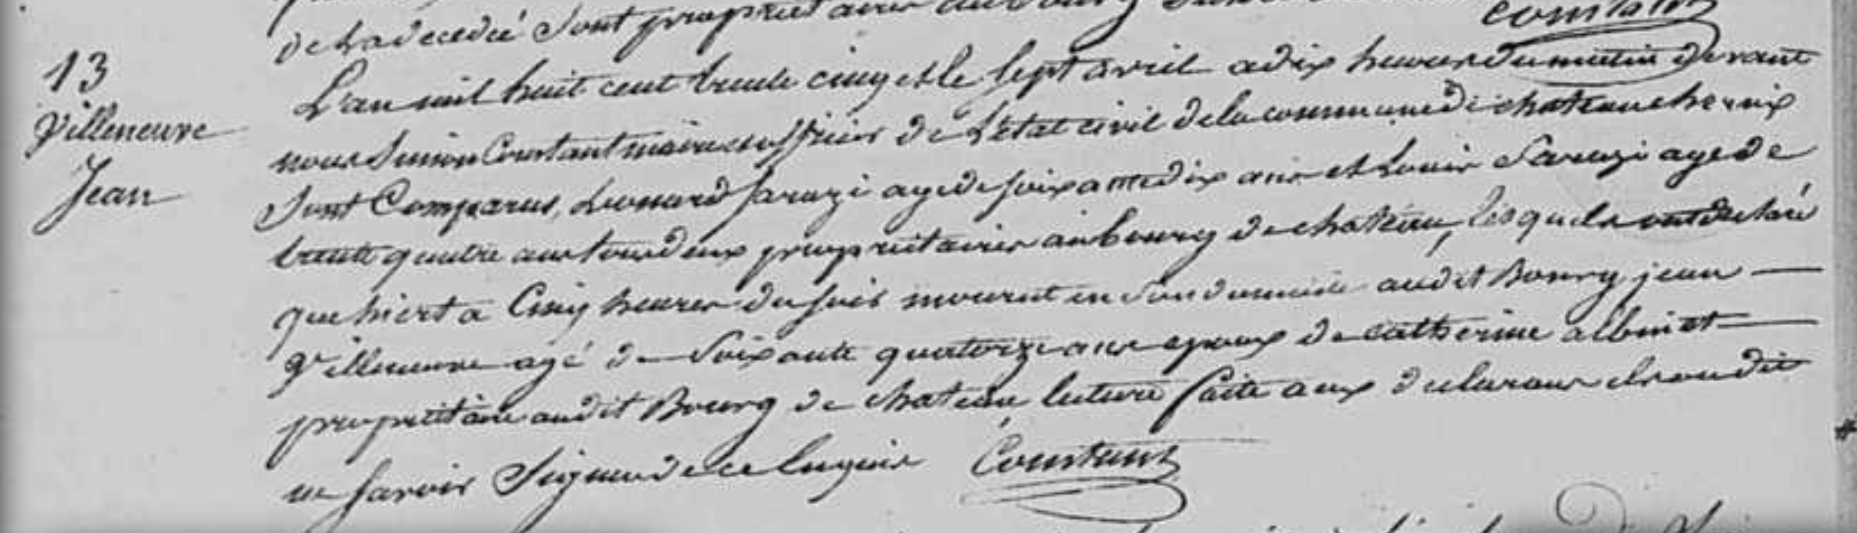 de la decedée sont proprietaires au bourg
Constant
13
Villeneuve
Jean
L'an mil huit cent trente cinq et le sept avril a dix heures du matin devant
nous Simon Constant maire officier de l'état civil de la commune de chateauchervix
sont Comparus, Leonard Sarazi age de soixante dix ans et Louis Sarazi age de
trente quatre ans tous deux propriétaires au bourg de chateau, lesquels ont declaré
que hiert a Cinq heures du soir mourut en son domicile audit Bourg jean
Villeneuve agé de soixante quatorze ans epoux de catherine albinet
propriétaire audit Bourg de chateau lecture faite aux declarans ils ont dit
ne savoir signer de ce enquis Constant